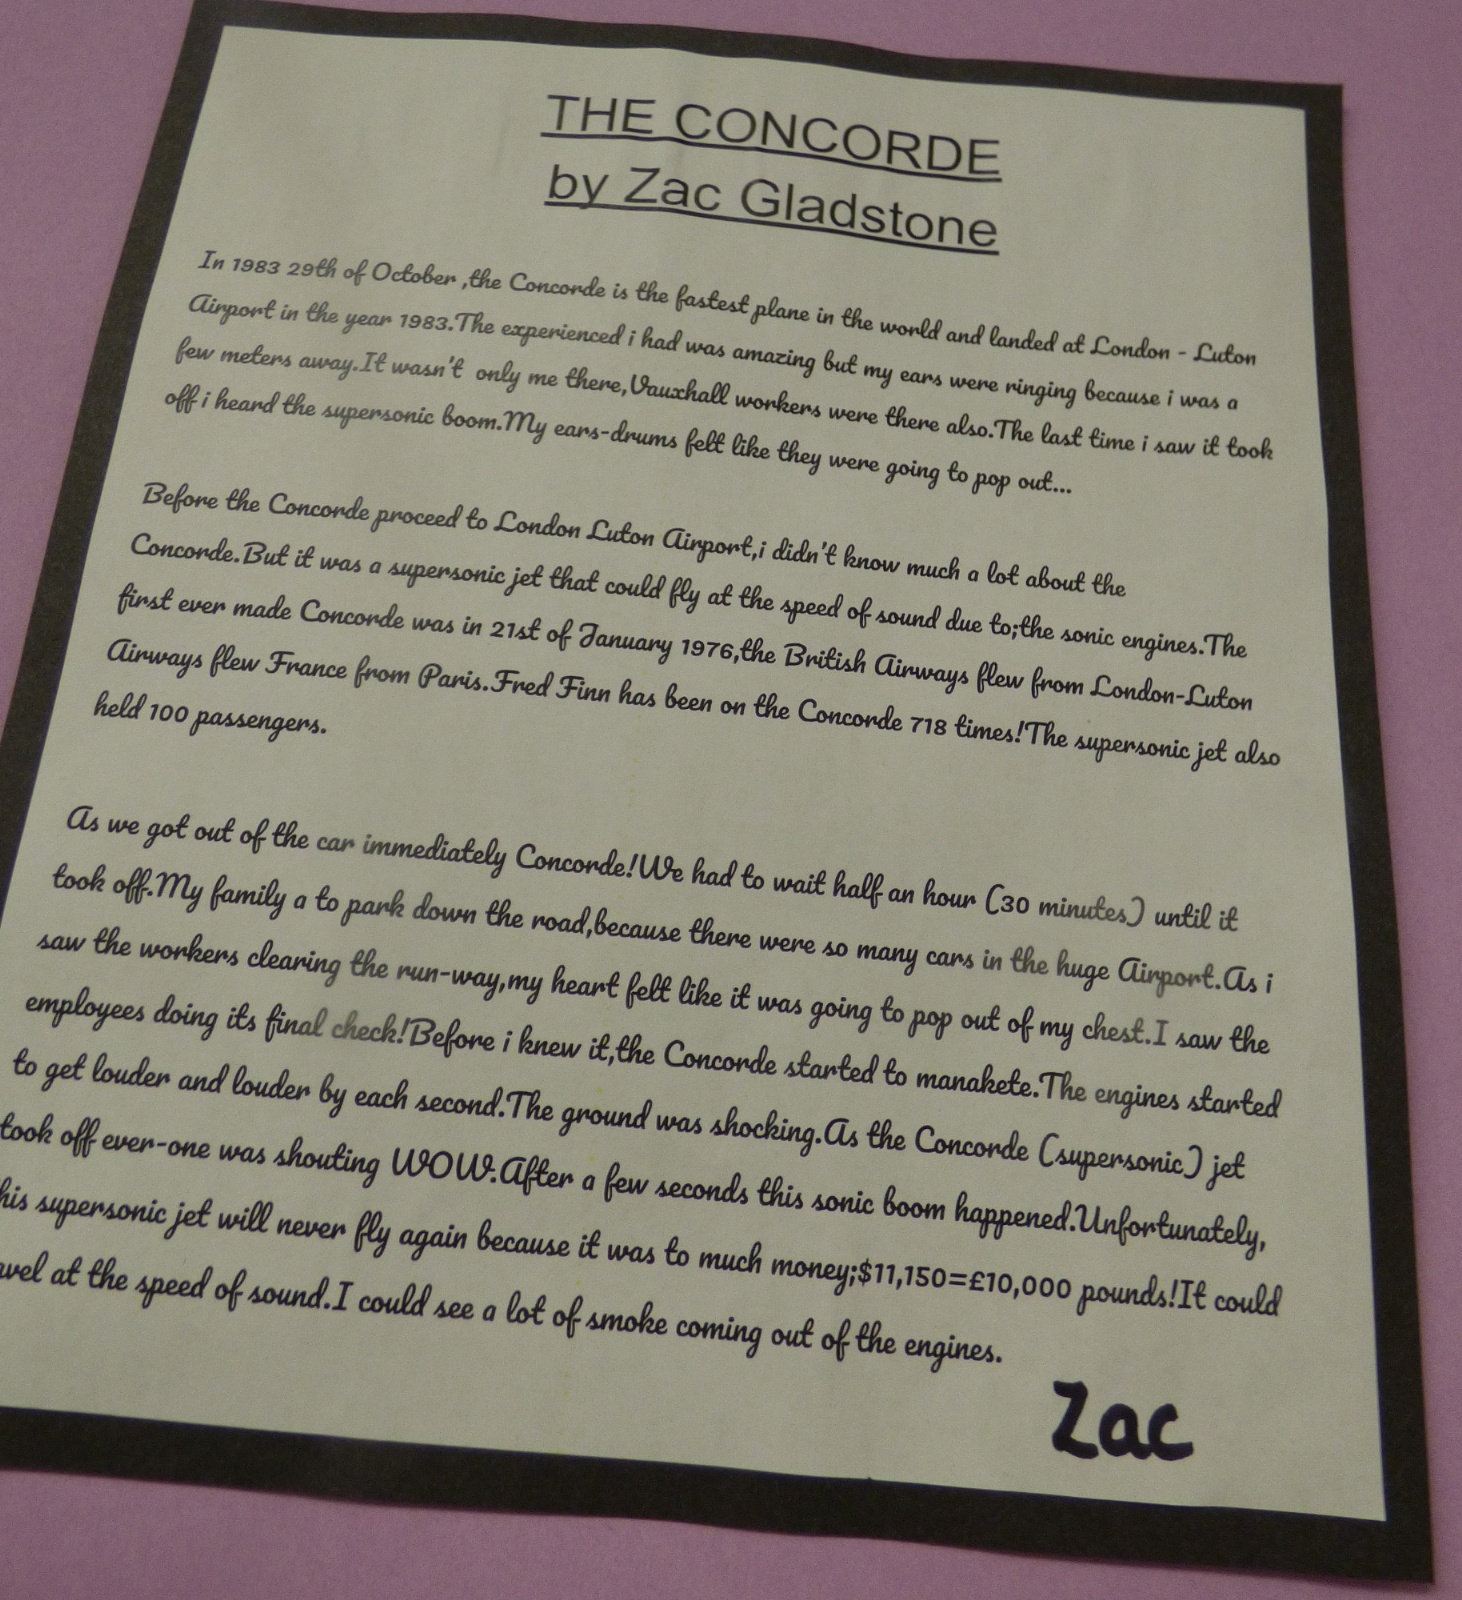 THE CONCORDE
by Zac Gladstone
In 1983 29th of October ,the Concorde is the fastest plane in the world and landed at London - Luton
Airport in the year 1983.The experienced i had was amazing but my ears were ringing because i was a
few meters away.It wasn't only me there,Vauxhall workers were there also.The last time i saw it took
off i heard the supersonic boom.My ears-drums felt like they were going to pop out...
Before the Concorde proceed to London Luton Airport,i didn't know much a lot about the
Concorde.But it was a supersonic jet that could fly at the speed of sound due to;the sonic engines.The
first ever made Concorde was in 21st of January 1976,the British Airways flew from London-Luton
Airways flew France from Paris.Fred Finn has been on the Concorde 718 times!The supersonic jet also
held 100 passengers.
As we got out of the car immediately Concorde!We had to wait half an hour (30 minutes) until it
took off.My family a to park down the road,because there were so many cars in the huge Airport.As i
saw the workers clearing the run-way,my heart felt like it was going to pop out of my chest.I saw the
employees doing its final check!Before i knew it,the Concorde started to manakete.The engines started
to get louder and louder by each second.The ground was shocking.As the Concorde (supersonic) jet
took off ever-one was shouting WOW.After a few seconds this sonic boom happened.Unfortunately,
his supersonic jet will never fly again because it was to much money;$11,150=£10,000 pounds!It could
avel at the speed of sound.I could see a lot of smoke coming out of the engines.
Zac